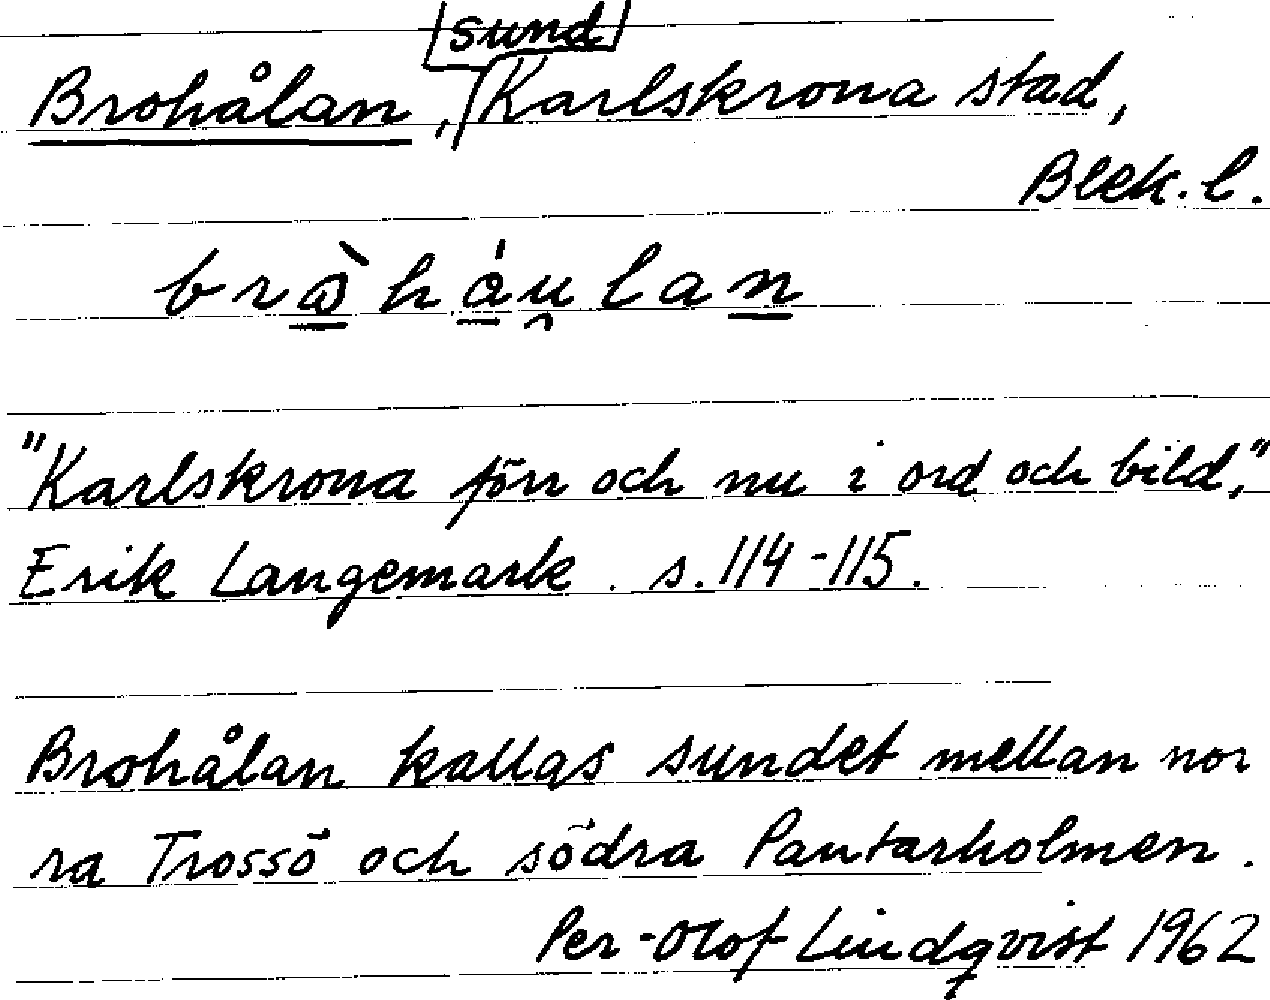 sund
Brohålan, Karlskrona stad,
Blek. l.
"Karlskrona förr och nu i ord och bild",
Erik Langemark. s. 114-115.
Brohålan kallas sundet mellan nor
ra Trossö och södra Pantarholmen.
Per-Olof Lindqvist 1962